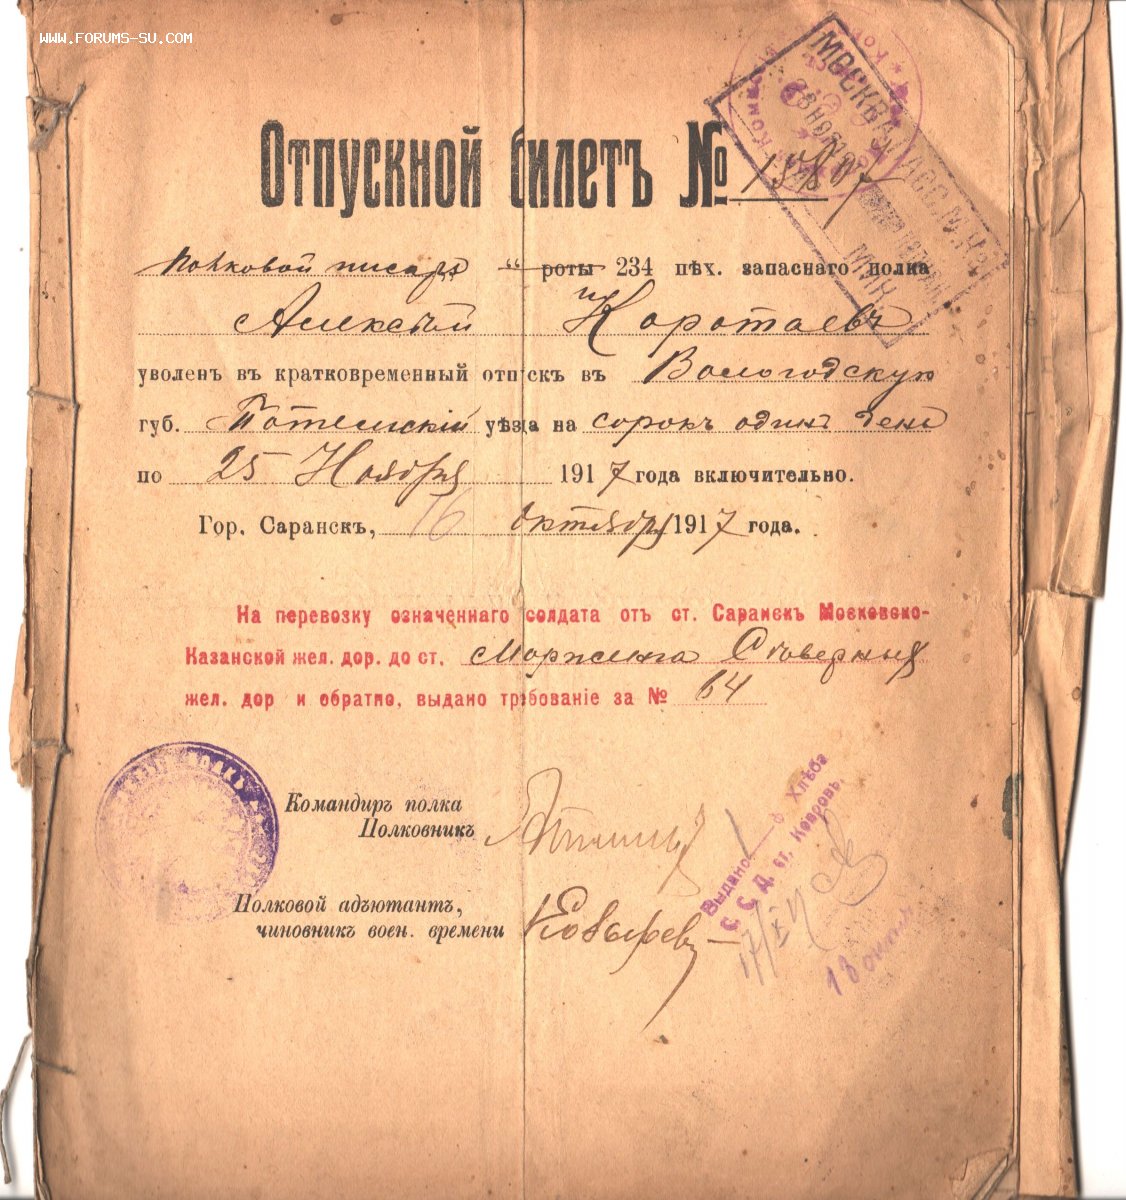 WWW.FORUMS-SU.COM
МОСКВА
Отпускной билетъ №
полковой писарь "—" роты 234 пѣх. запаснаго полка
Алексѣй Коротаевъ
уволенъ въ кратковременный отпускъ въ Вологодскую
губ. Тотемскій уѣзда на сорокъ одинъ день
по 25 Ноября 1917 года включительно.
Гор. Саранскъ, 16 октября 1917 года.
На перевозку означеннаго солдата отъ ст. Саранскъ Московско-
Казанской жел. дор. до ст. Морженга Сѣверныхъ
жел. дор и обратно, выдано требованіе за № 64
Командиръ полка
Полковникъ
Полковой адъютантъ,
чиновникъ воен. времени
Выдано ф Хлѣба
ст. Ковровъ.
17/XI
18 окт